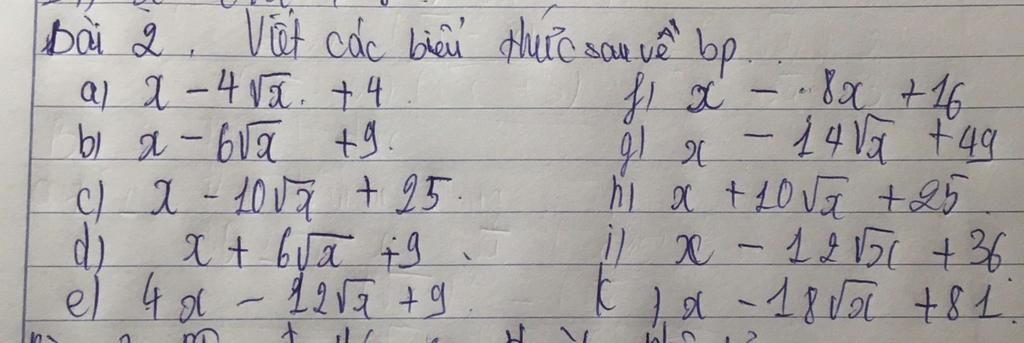 Bài 2. Viết các biểu thức sau về bp.
a) x - 4√x + 4
b) x - 6√x + 9.
c) x - 10√x + 25.
d) x + 6√x + 9
e) 4x - 12√x + 9.
f) x - 8x + 16
g) x - 14√x + 49
h) x + 10√x + 25
i) x - 12√x + 36
k) x - 18√x + 81.